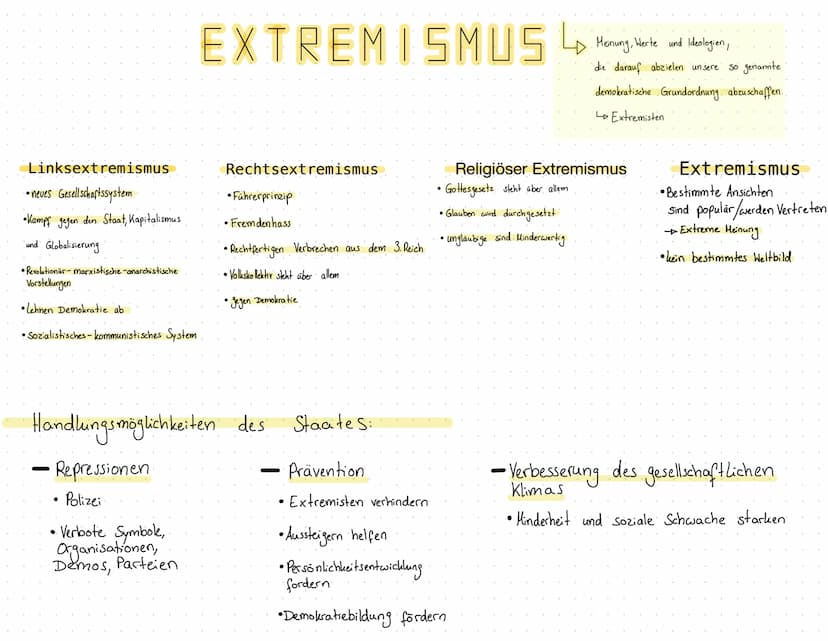 EXTREMISMUS
Meinung, Werte und Ideologien,
die darauf abzielen unsere so genannte
demokratische Grundordnung abzuschaffen
↳ Extremisten
Linksextremismus
• neues Gesellschaftssystem
• Kampf gegen den Staat, Kapitalismus
und Globalisierung
• Revolutionär-marxistische-anarchistische
Vorstellungen
• Lehnen Demokratie ab
• Sozialistisches-kommunistisches System
Rechtsextremismus
• Führerprinzip
• Fremdenhass
• Rechtfertigen Verbrechen aus dem 3. Reich
• Volkskollektiv steht über allem
• gegen Demokratie
Religiöser Extremismus
• Gottesgesetz steht über allem
• Glauben wird durchgesetzt
• ungläubige sind Minderwertig
Extremismus
• Bestimmte Ansichten
sind populär/werden Vertreten
→ Extreme Meinung
• kein bestimmtes Weltbild
Handlungsmöglichkeiten des Staates:
– Repressionen
• Polizei
• Verbote Symbole,
Organisationen,
Demos, Parteien
– Prävention
• Extremisten verhindern
• Aussteigern helfen
• Persönlichkeitsentwicklung
fördern
• Demokratiebildung fördern
– Verbesserung des gesellschaftlichen
Klimas
• Minderheit und soziale Schwache starken